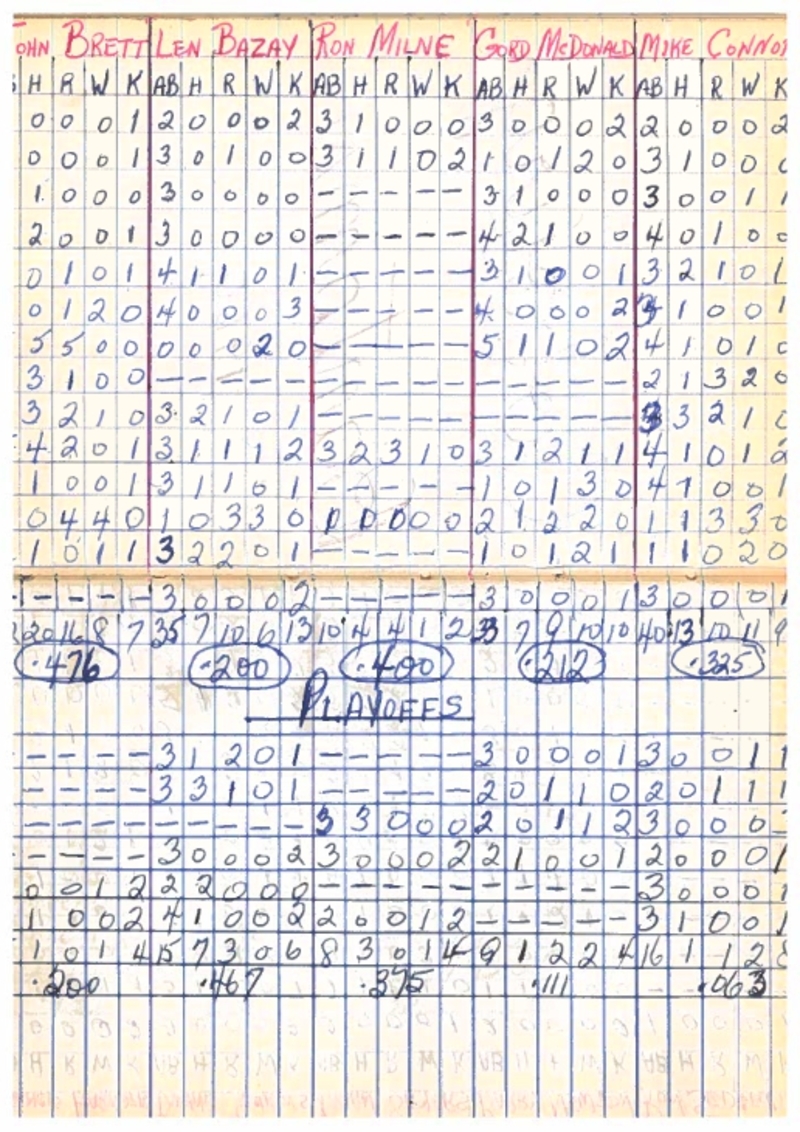 OHN BRETT LEN BAZAY RON MILNE GORD MCDONALD MIKE CONNO
H R W K AB H R W K AB H R W K AB H R W K AB H R W K
0 0 0 1 2 0 0 0 2 3 1 0 0 0 3 0 0 0 2 2 0 0 0 2
0 0 0 1 3 0 1 0 0 3 1 1 0 2 1 0 1 2 0 3 1 0 0
1 0 0 0 3 0 0 0 0 - - - - - 3 1 0 0 0 3 0 0 1 1
2 0 0 1 3 0 0 0 0 - - - - - 4 2 1 0 0 4 0 1 0
0 1 0 1 4 1 1 0 1 - - - - - 3 1 0 0 1 3 2 1 0 1
0 1 2 0 4 0 0 0 3 - - - - - 4 0 0 0 2 1 0 0 1
5 5 0 0 0 0 0 2 0 - - - - - 5 1 1 0 2 4 1 0 1
3 1 0 0 - - - - - - - - - - - - - - - 2 1 3 2 0
3 2 1 0 3 2 1 0 1 - - - - - - - - - - 3 3 2 1
4 2 0 1 3 1 1 1 2 3 2 3 1 0 3 1 2 1 1 4 1 0 1 2
1 0 0 1 3 1 1 0 1 - - - - - 1 0 1 3 0 4 1 0 0 1
0 4 4 0 1 0 3 3 0 0 0 0 0 0 2 1 2 2 0 1 1 3 3 0
1 0 1 1 3 2 2 0 1 - - - - - 1 0 1 2 1 1 1 0 2 0
- - - - 3 0 0 0 2 - - - - - 3 0 0 0 1 3 0 0 0 1
20 16 8 7 35 7 10 6 13 10 4 4 1 2 33 7 9 10 10 40 13 10 11 9
.476 .200 .400 .212 .325
PLAYOFFS
- - - - 3 1 2 0 1 - - - - - 3 0 0 0 1 3 0 0 1 1
- - - - 3 3 1 0 1 - - - - - 2 0 1 1 0 2 0 1 1 1
- - - - - - - - - 3 3 0 0 0 2 0 1 1 2 3 0 0 0
- - - - 3 0 0 0 2 3 0 0 0 2 2 1 0 0 1 2 0 0 0 1
0 0 1 2 2 2 0 0 0 - - - - - - - - - - 3 0 0 0 1
1 0 0 2 4 1 0 0 2 2 0 0 1 2 - - - - - 3 1 0 0 1
1 0 1 4 15 7 3 0 6 8 3 0 1 4 9 1 2 2 4 16 1 1 2
.200 .467 .375 .111 .063